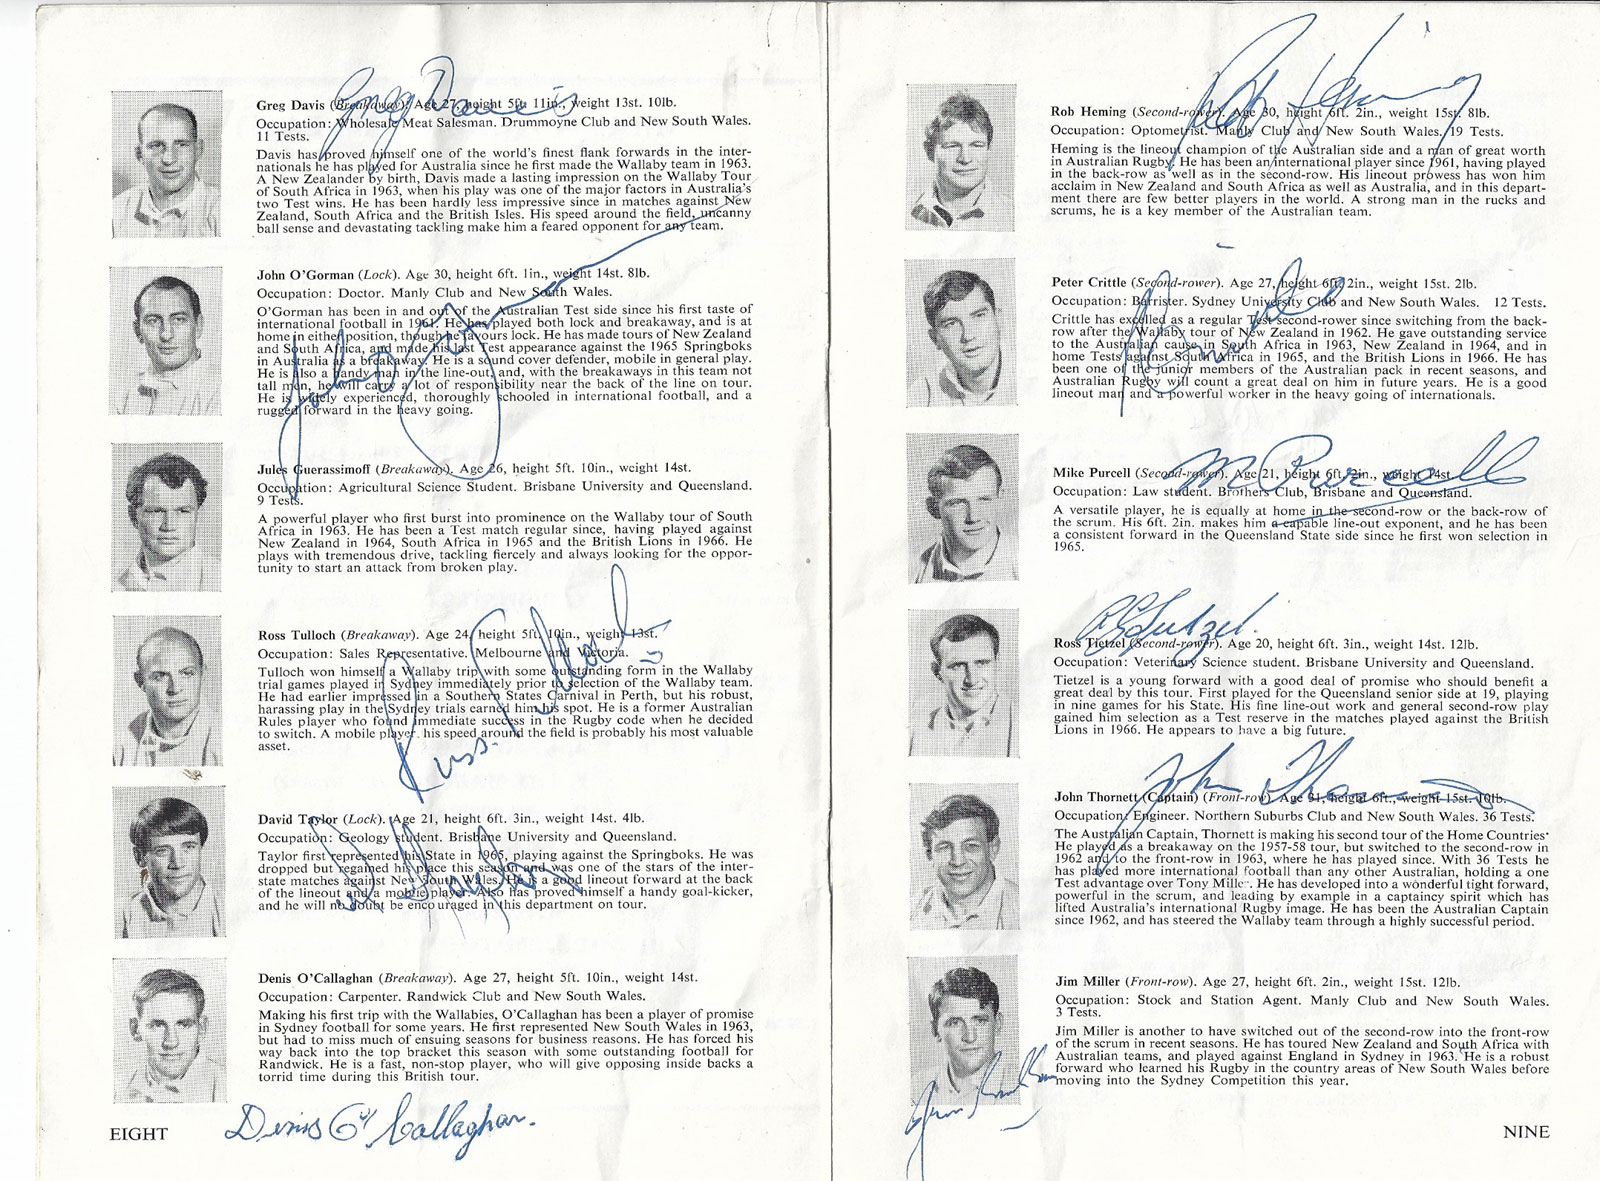 Greg Davis
Greg Davis (Breakaway). Age 27, height 5ft. 11in., weight 13st. 10lb.
Occupation: Wholesale Meat Salesman. Drummoyne Club and New South Wales.
11 Tests.
Davis has proved himself one of the world's finest flank forwards in the inter-
nationals he has played for Australia since he first made the Wallaby team in 1963.
A New Zealander by birth, Davis made a lasting impression on the Wallaby Tour
of South Africa in 1963, when his play was one of the major factors in Australia's
two Test wins. He has been hardly less impressive since in matches against New
Zealand, South Africa and the British Isles. His speed around the field, uncanny
ball sense and devastating tackling make him a feared opponent for any team.
John O'Gorman (Lock). Age 30, height 6ft. 1in., weight 14st. 8lb.
Occupation: Doctor. Manly Club and New South Wales.
O'Gorman has been in and out of the Australian Test side since his first taste of
international football in 1961. He has played both lock and breakaway, and is at
home in either position, though he favours lock. He has made tours of New Zealand
and South Africa, and made his last Test appearance against the 1965 Springboks
in Australia as a breakaway. He is a sound cover defender, mobile in general play.
He is also a handy man in the line-out, and, with the breakaways in this team not
tall men, he will carry a lot of responsibility near the back of the line on tour.
He is widely experienced, thoroughly schooled in international football, and a
rugged forward in the heavy going.
John O'Gorman
Jules Guerassimoff (Breakaway). Age 26, height 5ft. 10in., weight 14st.
Occupation: Agricultural Science Student. Brisbane University and Queensland.
9 Tests.
A powerful player who first burst into prominence on the Wallaby tour of South
Africa in 1963. He has been a Test match regular since, having played against
New Zealand in 1964, South Africa in 1965 and the British Lions in 1966. He
plays with tremendous drive, tackling fiercely and always looking for the oppor-
tunity to start an attack from broken play.
Ross Tulloch (Breakaway). Age 24, height 5ft. 10in., weight 13st.
Occupation: Sales Representative. Melbourne and Victoria.
Tulloch won himself a Wallaby trip with some outstanding form in the Wallaby
trial games played in Sydney immediately prior to selection of the Wallaby team.
He had earlier impressed in a Southern States Carnival in Perth, but his robust,
harassing play in the Sydney trials earned him his spot. He is a former Australian
Rules player who found immediate success in the Rugby code when he decided
to switch. A mobile player, his speed around the field is probably his most valuable
asset.
Ross. Tulloch
David Taylor (Lock). Age 21, height 6ft. 3in., weight 14st. 4lb.
Occupation: Geology student. Brisbane University and Queensland.
Taylor first represented his State in 1965, playing against the Springboks. He was
dropped but regained his place this season and was one of the stars of the inter-
state matches against New South Wales. He is a good lineout forward at the back
of the lineout and a mobile player. Also has proved himself a handy goal-kicker,
and he will no doubt be encouraged in this department on tour.
Denis O'Callaghan (Breakaway). Age 27, height 5ft. 10in., weight 14st.
Occupation: Carpenter. Randwick Club and New South Wales.
Making his first trip with the Wallabies, O'Callaghan has been a player of promise
in Sydney football for some years. He first represented New South Wales in 1963,
but had to miss much of ensuing seasons for business reasons. He has forced his
way back into the top bracket this season with some outstanding football for
Randwick. He is a fast, non-stop player, who will give opposing inside backs a
torrid time during this British tour.
Denis O'Callaghan.
EIGHT
Rob Heming
Rob Heming (Second-rower). Age 30, height 6ft. 2in., weight 15st. 8lb.
Occupation: Optometrist. Manly Club and New South Wales. 19 Tests.
Heming is the lineout champion of the Australian side and a man of great worth
in Australian Rugby. He has been an international player since 1961, having played
in the back-row as well as in the second-row. His lineout prowess has won him
acclaim in New Zealand and South Africa as well as Australia, and in this depart-
ment there are few better players in the world. A strong man in the rucks and
scrums, he is a key member of the Australian team.
Peter Crittle (Second-rower). Age 27, height 6ft. 2in., weight 15st. 2lb.
Occupation: Barrister. Sydney University Club and New South Wales. 12 Tests.
Crittle has excelled as a regular Test second-rower since switching from the back-
row after the Wallaby tour of New Zealand in 1962. He gave outstanding service
to the Australian cause in South Africa in 1963, New Zealand in 1964, and in
home Tests against South Africa in 1965, and the British Lions in 1966. He has
been one of the junior members of the Australian pack in recent seasons, and
Australian Rugby will count a great deal on him in future years. He is a good
lineout man and a powerful worker in the heavy going of internationals.
M Purcell
Mike Purcell (Second-rower). Age 21, height 6ft. 2in., weight 14st.
Occupation: Law student. Brothers Club, Brisbane and Queensland.
A versatile player, he is equally at home in the second-row or the back-row of
the scrum. His 6ft. 2in. makes him a capable line-out exponent, and he has been
a consistent forward in the Queensland State side since he first won selection in
1965.
Ross Tietzel (Second-rower). Age 20, height 6ft. 3in., weight 14st. 12lb.
Occupation: Veterinary Science student. Brisbane University and Queensland.
Tietzel is a young forward with a good deal of promise who should benefit a
great deal by this tour. First played for the Queensland senior side at 19, playing
in nine games for his State. His fine line-out work and general second-row play
gained him selection as a Test reserve in the matches played against the British
Lions in 1966. He appears to have a big future.
John Thornett
John Thornett (Captain) (Front-row). Age 31, height 6ft., weight 15st. 10lb.
Occupation: Engineer. Northern Suburbs Club and New South Wales. 36 Tests.
The Australian Captain, Thornett is making his second tour of the Home Countries.
He played as a breakaway on the 1957-58 tour, but switched to the second-row in
1962 and to the front-row in 1963, where he has played since. With 36 Tests he
has played more international football than any other Australian, holding a one
Test advantage over Tony Miller. He has developed into a wonderful tight forward,
powerful in the scrum, and leading by example in a captaincy spirit which has
lifted Australia's international Rugby image. He has been the Australian Captain
since 1962, and has steered the Wallaby team through a highly successful period.
Jim Miller (Front-row). Age 27, height 6ft. 2in., weight 15st. 12lb.
Occupation: Stock and Station Agent. Manly Club and New South Wales.
3 Tests.
Jim Miller is another to have switched out of the second-row into the front-row
of the scrum in recent seasons. He has toured New Zealand and South Africa with
Australian teams, and played against England in Sydney in 1963. He is a robust
forward who learned his Rugby in the country areas of New South Wales before
moving into the Sydney Competition this year.
NINE